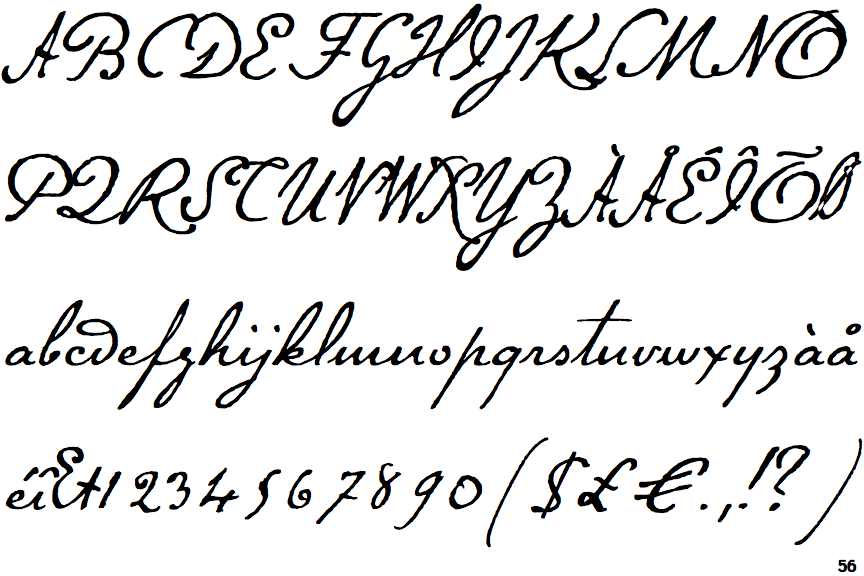 ABCDEFGHIJKLMNO
PQRSTUVWXYZÀÅÉÎÕØ
abcdefghijklmnopqrstuvwxyzàå
éî&1234567890($£€.,!?)
56